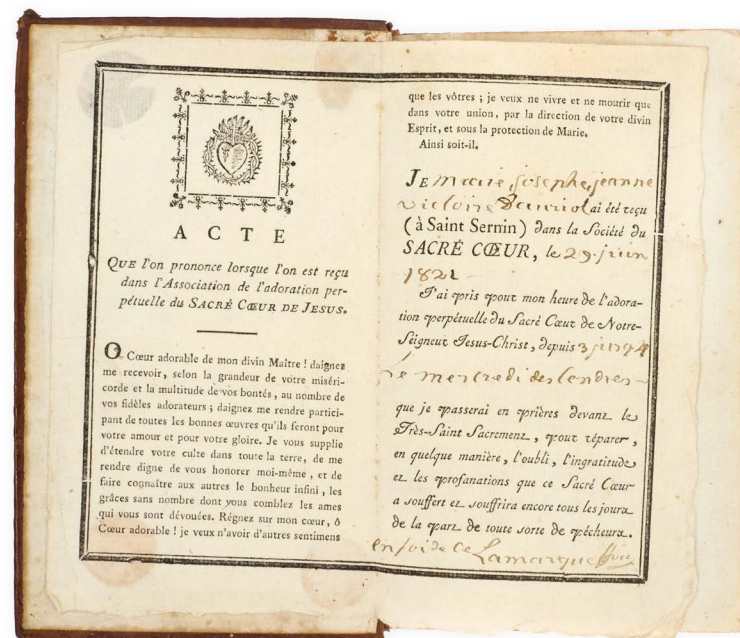 ACTE
QUE l'on prononce lorsque l'on est reçu
dans l'Association de l'adoration per-
pétuelle du SACRÉ CŒUR DE JESUS.
O Cœur adorable de mon divin Maître ! daignez
me recevoir, selon la grandeur de votre miséri-
corde et la multitude de vos bontés, au nombre de
vos fidèles adorateurs ; daignez me rendre partici-
pant de toutes les bonnes œuvres qu'ils feront pour
votre amour et pour votre gloire. Je vous supplie
d'étendre votre culte dans toute la terre, de me
rendre digne de vous honorer moi-même, et de
faire connaître aux autres le bonheur infini, les
grâces sans nombre dont vous comblez les ames
qui vous sont dévouées. Régnez sur mon cœur, ô
Cœur adorable ! je veux n'avoir d'autres sentimens
que les vôtres ; je veux ne vivre et ne mourir que
dans votre union, par la direction de votre divin
Esprit, et sous la protection de Marie.
Ainsi soit-il.
JE marie josephe jeanne
victoire Dauriol ai été reçu
(à Saint Sernin) dans la Société du
SACRÉ CŒUR, le 29. juin
J'ai pris pour mon heure de l'adora-
tion perpétuelle du Sacré Cœur de Notre-
Seigneur Jesus-Christ, depuis 3 jusq 4
le mercredi des Cendres
que je passerai en prières devant le
Très-Saint Sacrement, pour réparer,
en quelque manière, l'oubli, l'ingratitude
et les profanations que ce Sacré Cœur
a souffert et souffrira encore tous les jours
de la part de toute sorte de pécheurs.
en foi de ce Lamarque